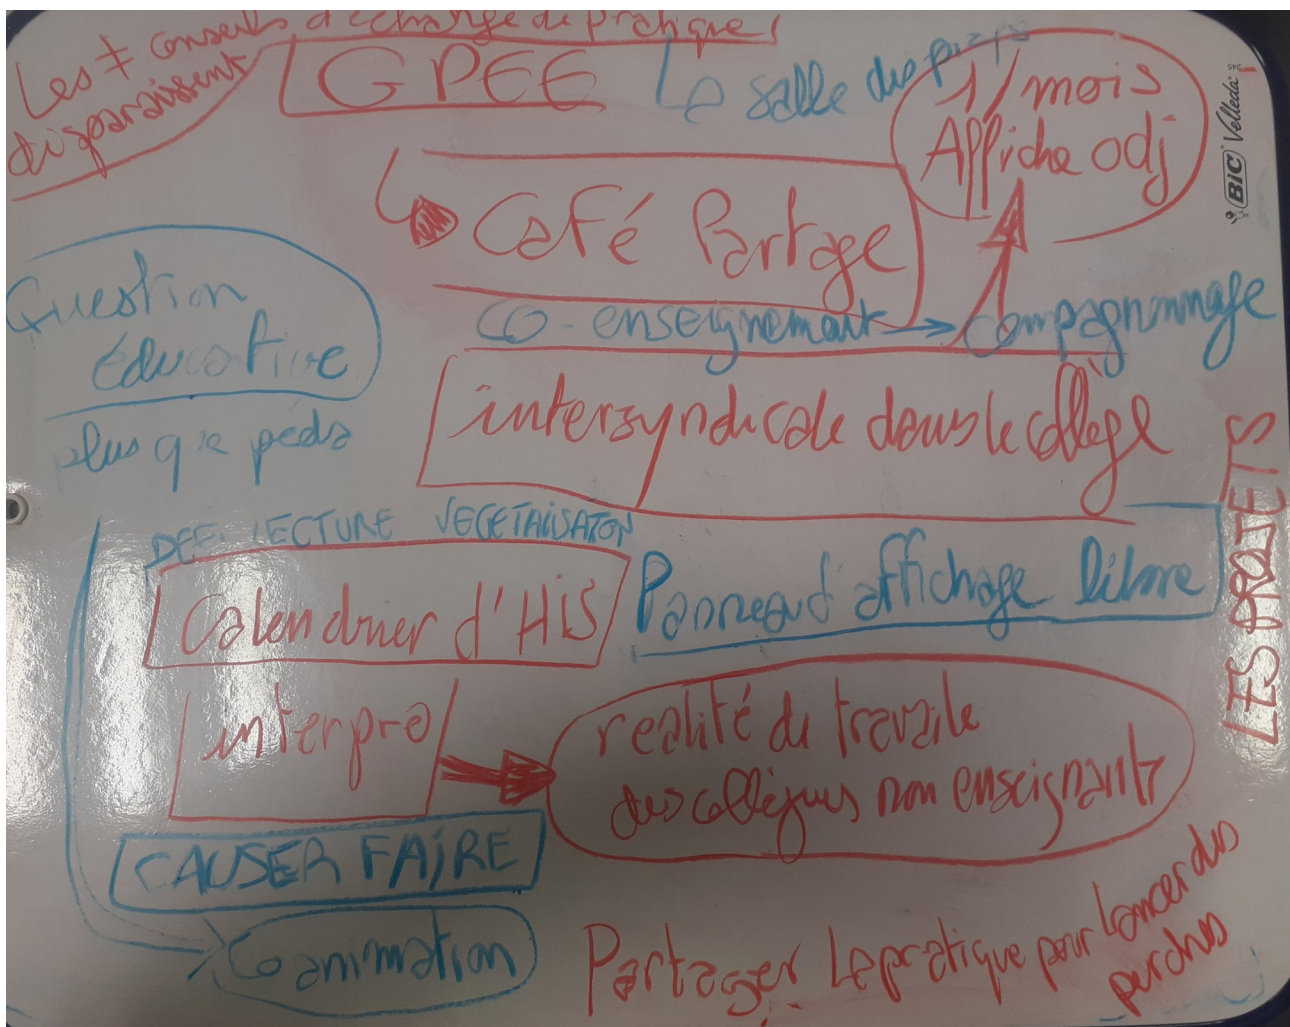 Les ≠ conseils d'échange de pratique
disparaissent
GPEE
La salle des profs
1/mois
Affiche odj
BIC Velleda
Café Partage
Question
éducative
plus que péda
co-enseignement → compagnonnage
intersyndicale dans le collège
LES PROJETS
DEFI LECTURE VEGETALISATON
Calendrier d'HiS
Panneau d'affichage libre
interpro
realité du travaile
des collègues non enseignants
CAUSER FAIRE
Co animation
Partager la pratique pour lancer des
perches